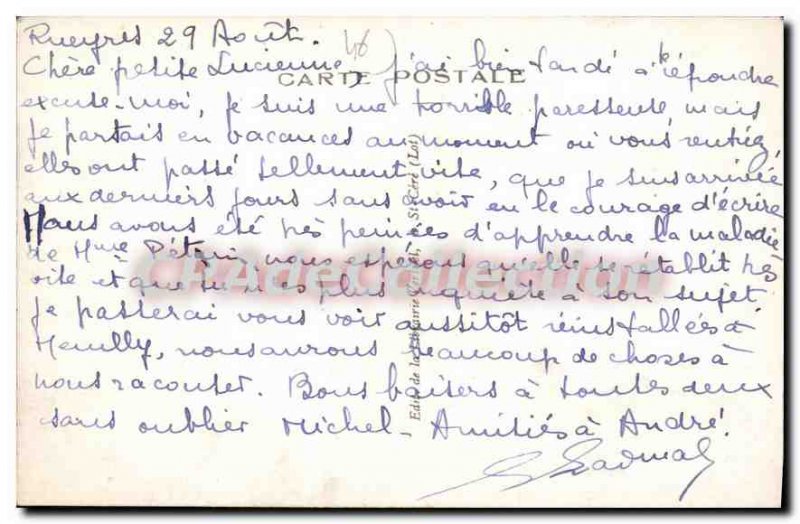 Rueyres 29 Août.
46
Chère petite Lucienne, j'ai bien tardé à te répondre
CARTE POSTALE
excuse-moi, je suis une horrible paresseuse mais
je partais en vacances au moment où vous rentriez,
elles ont passé tellement vite, que je suis arrivée
aux derniers jours sans avoir eu le courage d'écrire
Nous avons été très peinées d'apprendre la maladie
de Mme nous espérons qu'elle se rétablit très
vite et que tu n'es plus inquiète à son sujet.
Je passerai vous voir aussitôt réinstallées à
Neuilly, nous aurons beaucoup de choses à
nous raconter. Bons baisers à toutes deux
sans oublier Michel - Amitiés à André.
Edité de la Librairie St-Céré (Lot)
CPAdeCollection